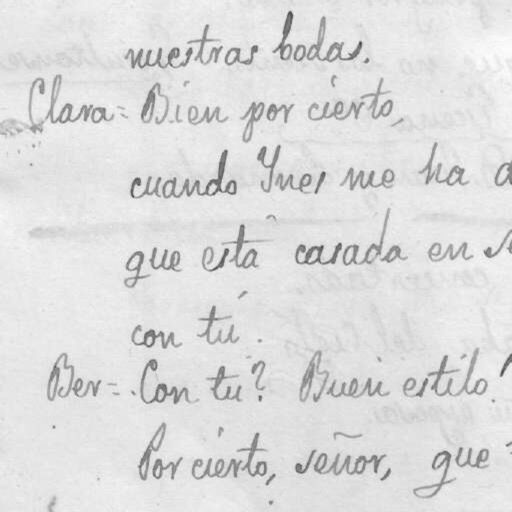 nuestras bodas.
Clara = Bien por cierto,
cuando Ynes me ha
que está casada en
con tú.
Ber = Con tu? Buen estilo!
Por cierto, señor, que